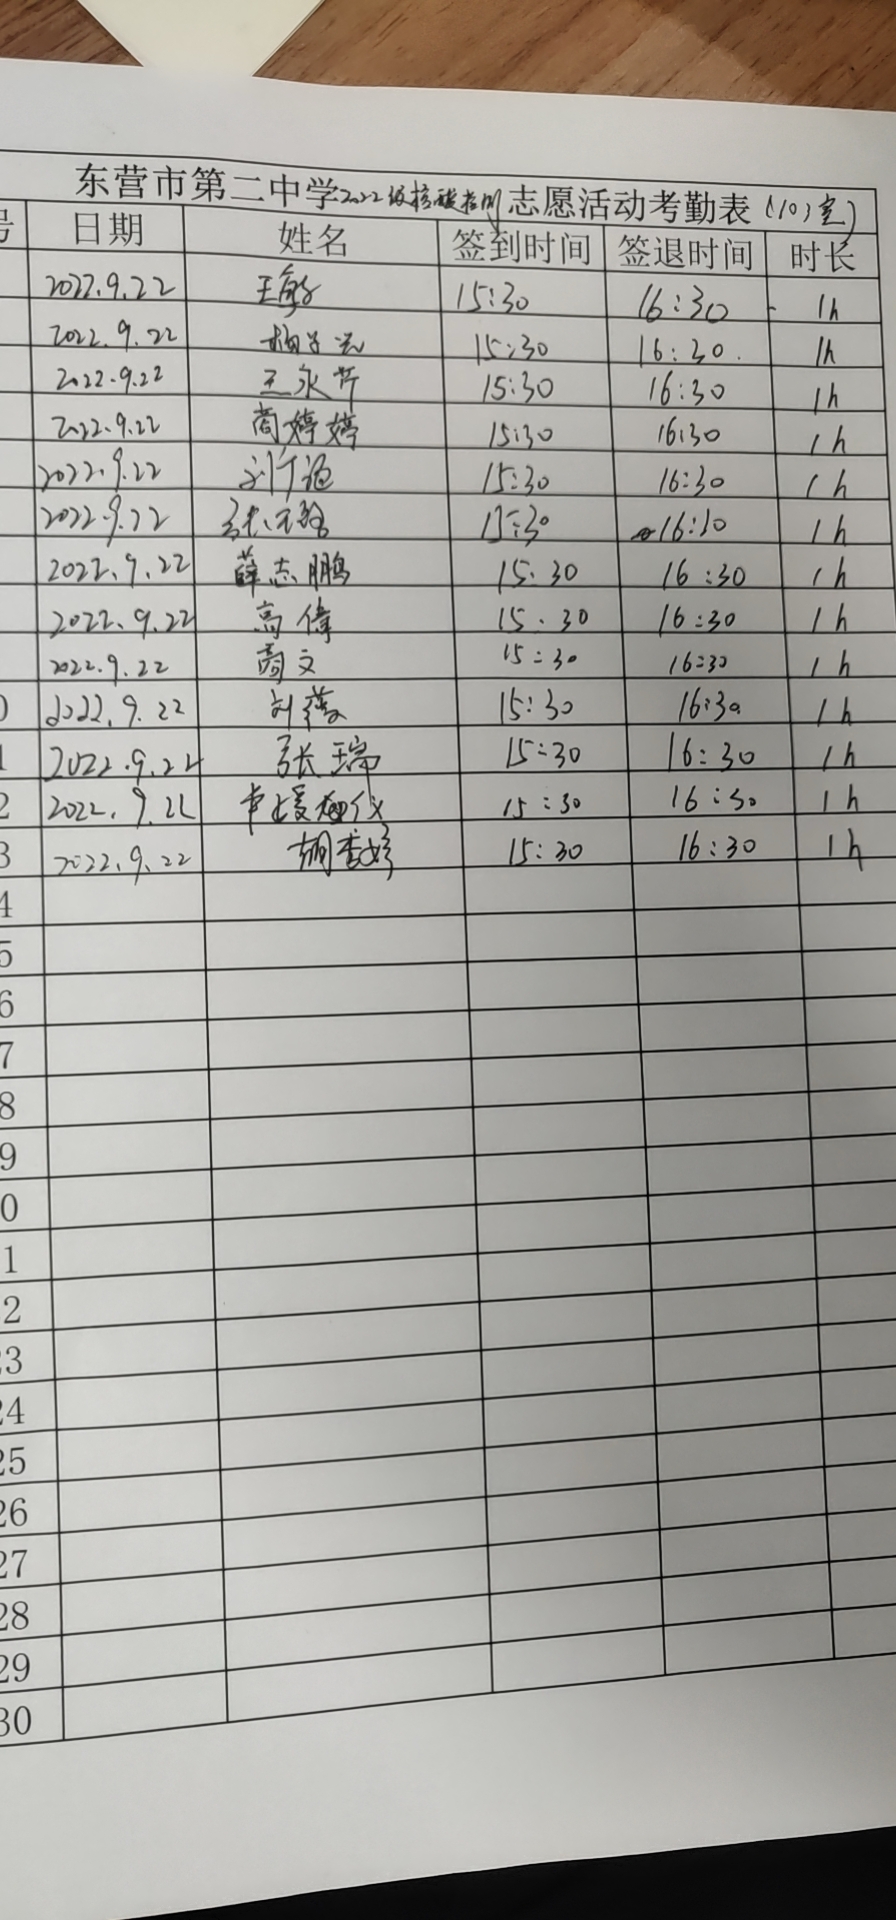 东营市第二中学2022级核酸检测志愿活动考勤表(103室)
号 日期 姓名 签到时间 签退时间 时长
2022.9.22 王敏 15:30 16:30 1h
2022.9.22 15:30 16:30. 1h
2022.9.22 王永芹 15:30 16:30 1h
2022.9.22 商婷婷 15:30 16:30 1h
2022.9.22 15:30 16:30 1h
2022.9.22 15:30 16:30 1h
2022.9.22 薛志鹏 15:30 16:30 1h
2022.9.22 高偉 15:30 16:30 1h
2022.9.22 15:30 16:30 1h
0 2022.9.22 15:30 16:30 1h
1 2022.9.22 张瑞 15:30 16:30 1h
2 2022.9.22 15:30 16:30 1h
3 2022.9.22 15:30 16:30 1h
4
5
6
7
8
9
0
1
2
23
24
25
26
27
28
29
30